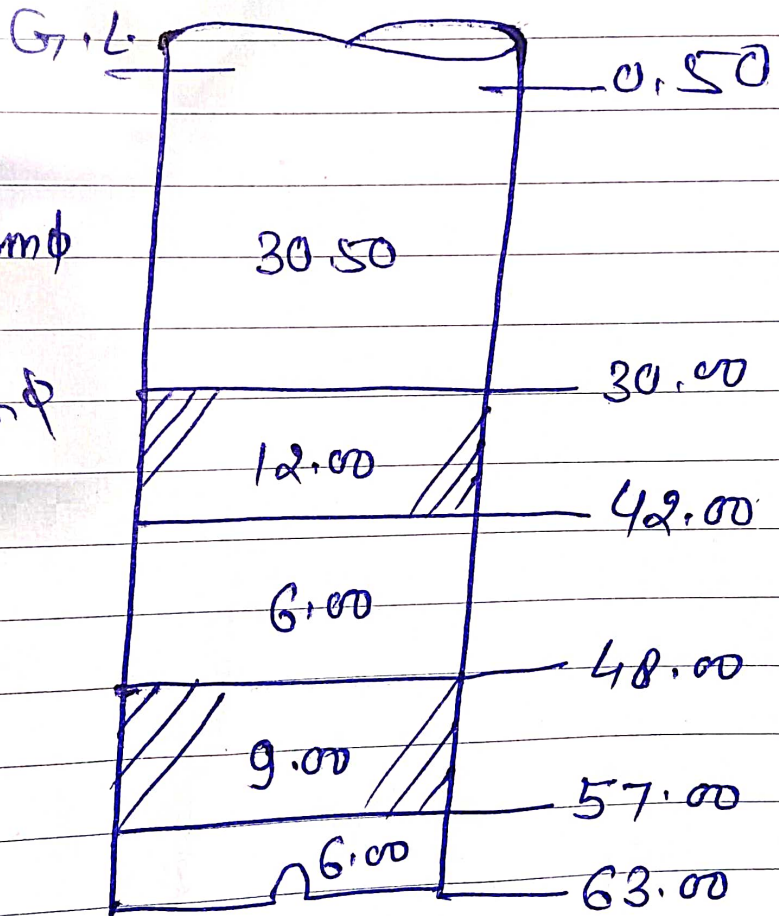 G.L.
0.50
mφ
30.50
30.00
φ
12.00
42.00
6.00
48.00
9.00
57.00
6.00
63.00